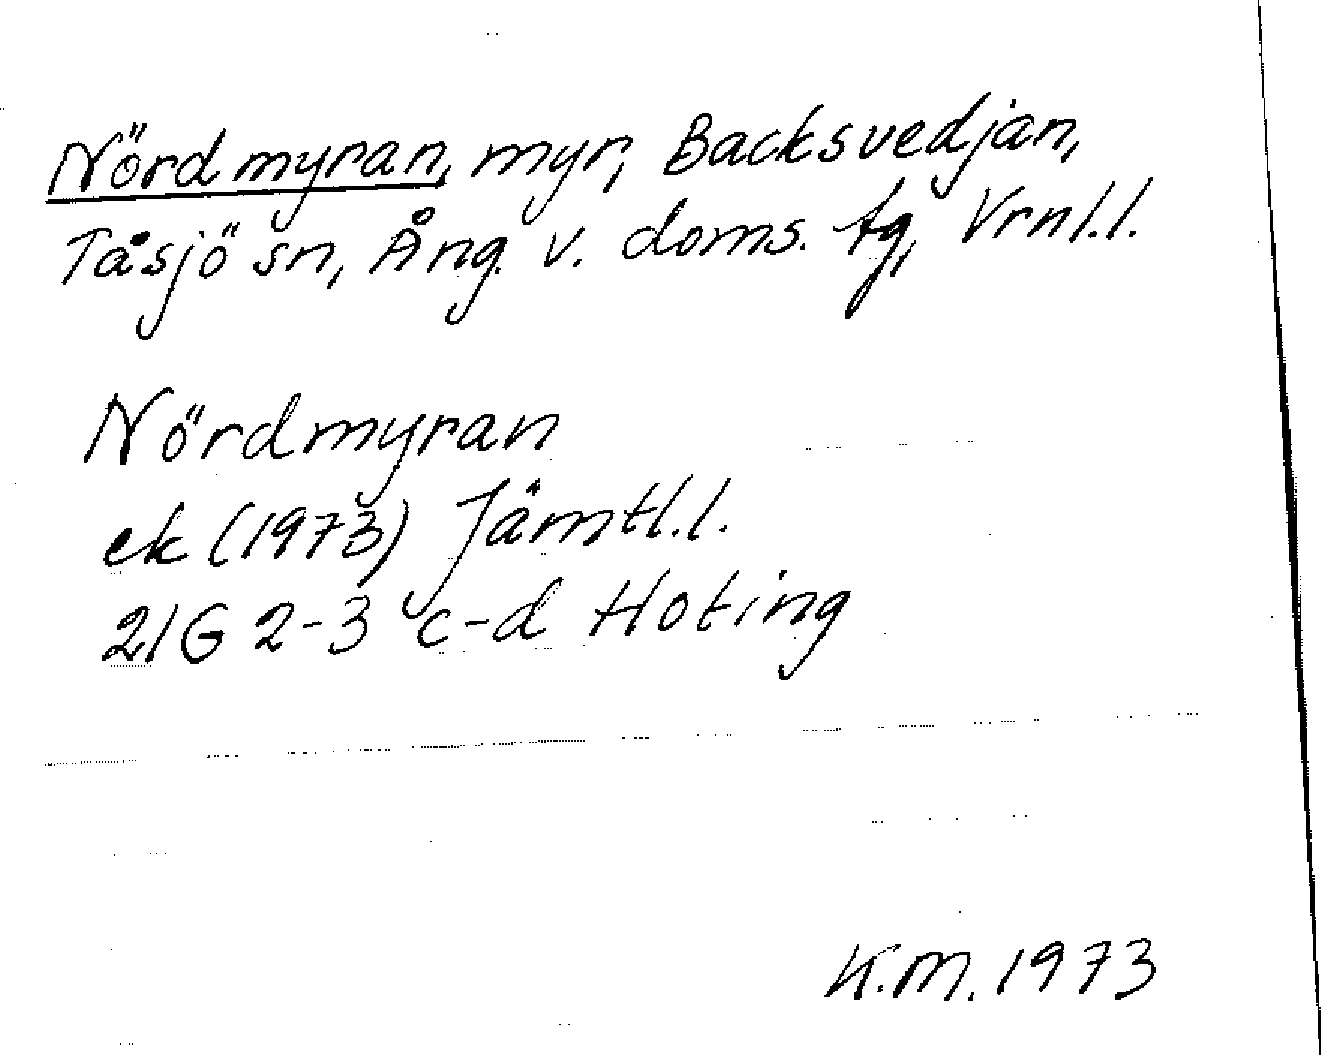 Nördmyran, myr, Backsvedjan,
Tåsjö sn, Ång. v. doms. tg, Vrnl.l.
Nördmyran
ek (1973) Jämtl.l.
21G 2-3 c-d Hoting
K.M. 1973